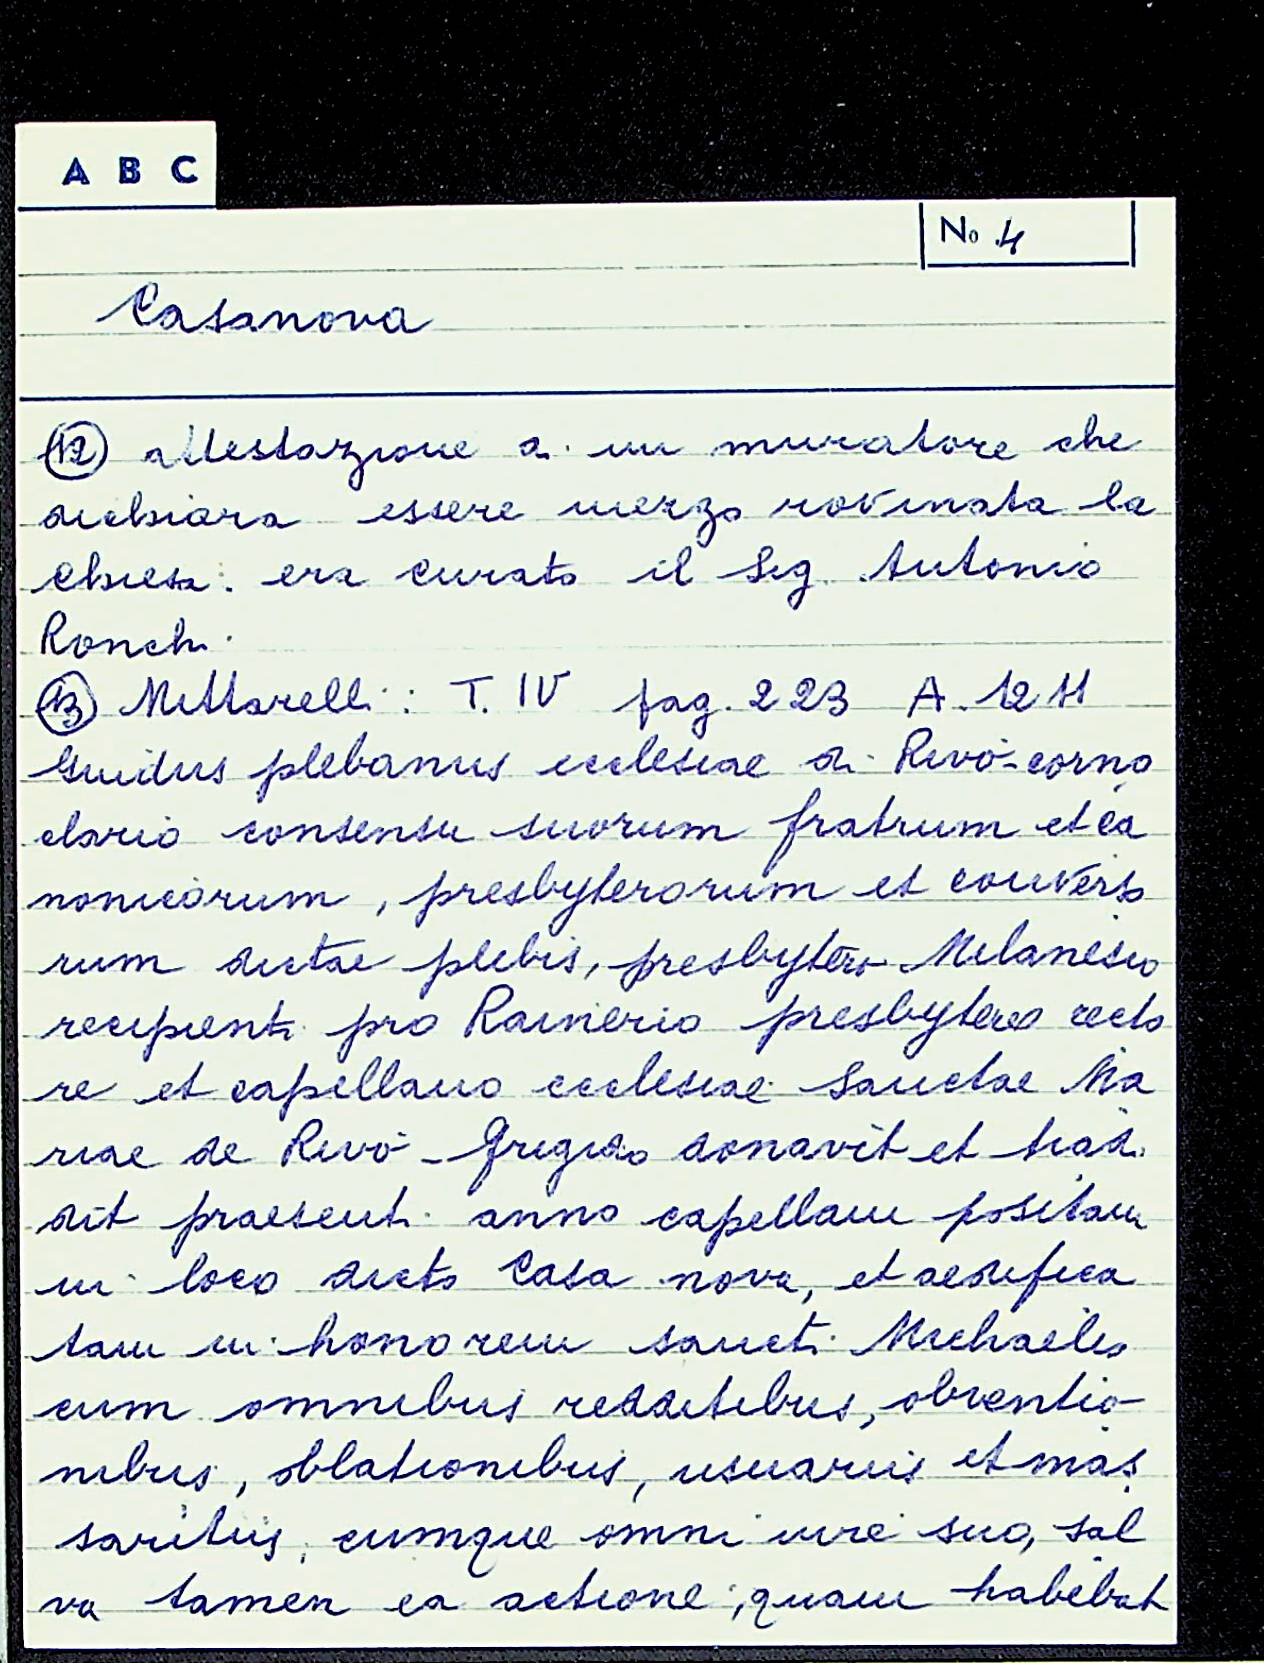 A B C
No 4
Casanova
(12) attestazione di un muratore che
dichiara essere mezzo rovinata la
chiesa: era curato il Sig. Antonio
Ronchi.
(13) Mittarelli: T. IV pag. 223 A. 1211
Guidus plebanus ecclesiae di Rivo-corna
clario consensu suorum fratrum et ca
nonicorum, presbyterorum et converso
rum dictae plebis, presbytero Milanesio
recipienti pro Rainerio presbytero recto
re et capellano ecclesiae Sanctae Ma
riae de Rivo-frigido donavit et tradi
dit praesenti anno capellam positam
in loco dicto Casa nova, et aedifica
tam in honorem sancti Michaelis
cum omnibus redditibus, obventio
nibus, oblationibus, usuariis et mas
saritiis, cumque omni iure suo, sal
va tamen ea actione, quam habebat